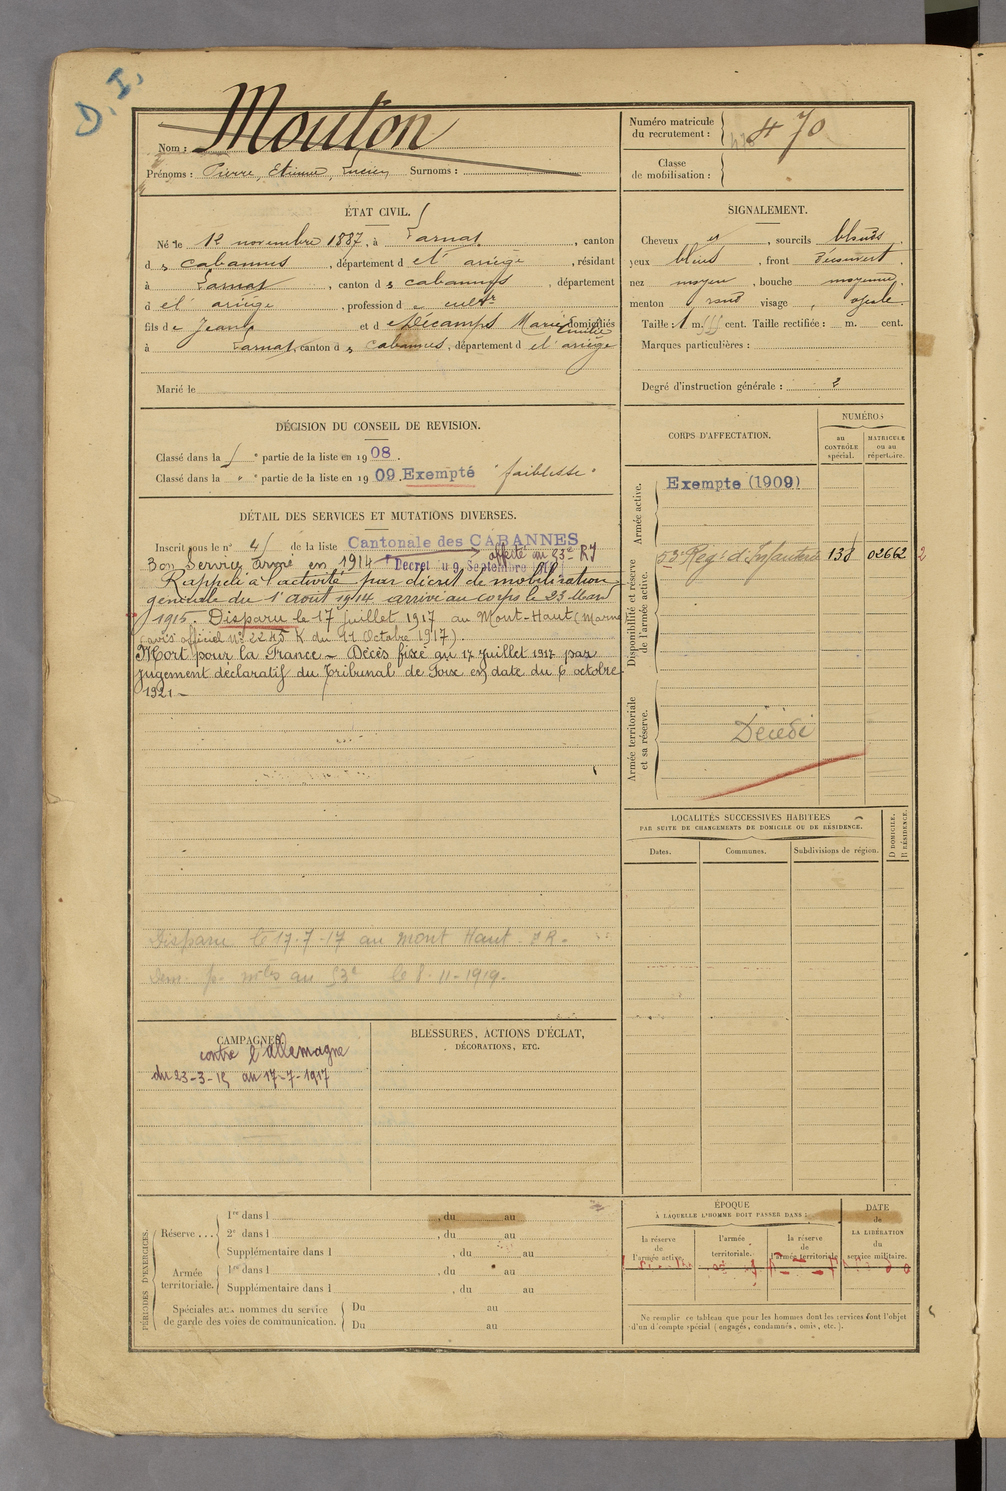 D. I.
Nom : Mouton
Prénoms : Pierre, Etienne, Lucien Surnoms :
Numéro matricule
du recrutement : 470
Classe
de mobilisation :
ÉTAT CIVIL.
Né le 12 novembre 1887, à Larnat, canton
d es cabannes, département d e l'ariège, résidant
à Larnat, canton d es cabannes, département
d e l'ariège, profession d e cultr
fils d e Jean et d e Décamps Marie Emilie domiciliés
à Larnat, canton d es cabannes, département d e l'ariège
Marié le
SIGNALEMENT.
Cheveux et, sourcils blonds.
yeux bleus, front découvert,
nez moyen, bouche moyenne,
menton rond visage ovale.
Taille : 1 m. cent. Taille rectifiée : m. cent.
Marques particulières :
Degré d'instruction générale : 2
DÉCISION DU CONSEIL DE REVISION.
Classé dans la " partie de la liste en 1908.
Classé dans la " " partie de la liste en 1909. Exempté "faiblesse"
DÉTAIL DES SERVICES ET MUTATIONS DIVERSES.
Inscrit sous le n° 4 de la liste Cantonale des CABANNES
Bon Service armé en 1914 Décret du 9 Septembre affecté au 53e RI
Rappelé à l'activité par décret de mobilisation
générale du 1 août 1914 arrivé au corps le 23 Mars
1915. Disparu le 17 Juillet 1917 au Mont-Haut (Marne)
(avis officiel N° 2245 K du 11 Octobre 1917).
Mort pour la France - Décès fixé au 17 juillet 1917 par
jugement déclaratif du Tribunal de Foix en date du 6 octobre
1921 -
Disparu le 17-7-17 au Mont Haut
le 8-11-1919.
CORPS D'AFFECTATION.
NUMÉROS
au
CONTRÔLE
spécial.
MATRICULE
ou au
répertoire.
Armée active.
Exempté (1909)
Disponibilité et réserve
de l'armée active.
53e Regt d'Infanterie 138 02662 2
Armée territoriale
et sa réserve.
Décédé
LOCALITÉS SUCCESSIVES HABITÉES
PAR SUITE DE CHANGEMENTS DE DOMICILE OU DE RÉSIDENCE.
Dates.
Communes.
Subdivisions de région.
D DOMICILE.
R RÉSIDENCE.
CAMPAGNES.
contre l'Allemagne
du 23-3-15 au 17-7-1917
BLESSURES, ACTIONS D'ÉCLAT,
DÉCORATIONS, ETC.
PÉRIODES D'EXERCICES.
Réserve ...
1re dans l , du au
2e dans l , du au
Supplémentaire dans l , du au
Armée
territoriale.
1re dans l , du au
Supplémentaire dans l , du au
Spéciales aux hommes du service
de garde des voies de communication.
Du au
Du au
ÉPOQUE
À LAQUELLE L'HOMME DOIT PASSER DANS :
la réserve
de
l'armée active.
l'armée
territoriale.
la réserve
de
l'armée territoriale
DATE
de
LA LIBÉRATION
du
service militaire.
Ne remplir ce tableau que pour les hommes dont les services font l'objet
d'un décompte spécial (engagés, condamnés, omis, etc.).